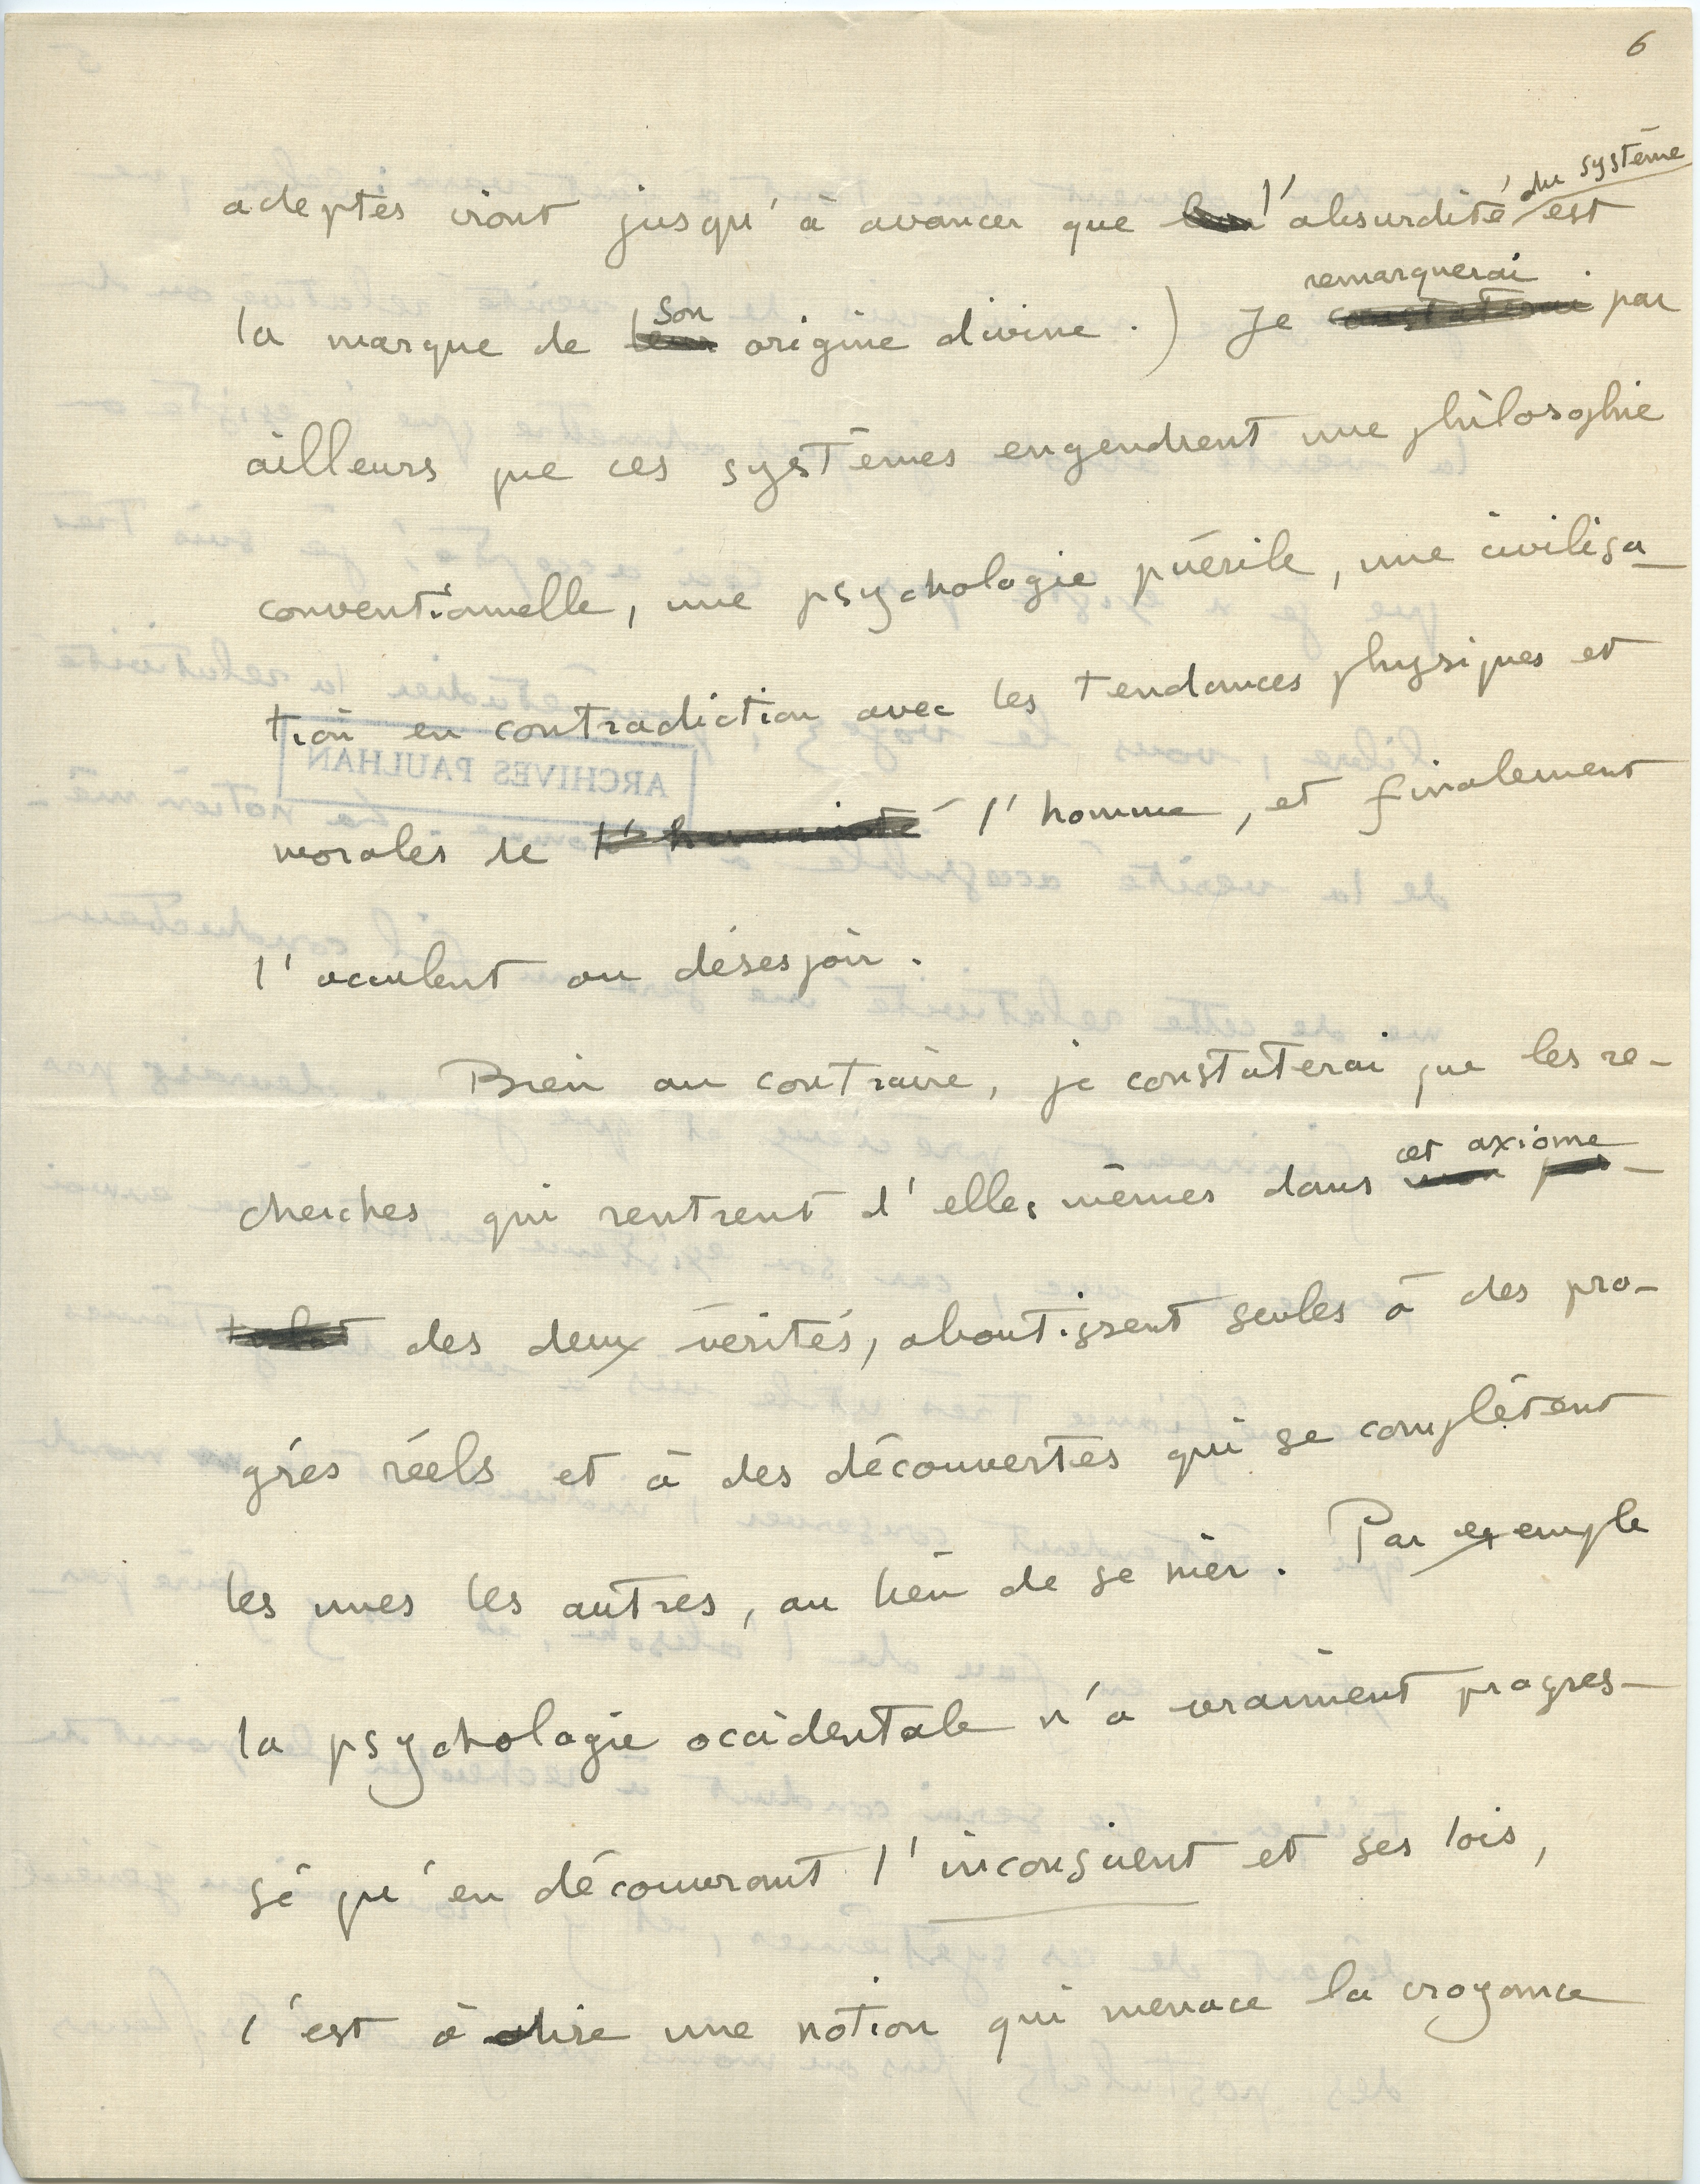 6
adeptes iront jusqu'à avancer que l'absurdité du système est
la marque de son origine divine.) Je remarquerai par
ailleurs que ces systèmes engendrent une philosophie
conventionnelle, une psychologie puérile, une civilisa-
tion en contradiction avec les tendances physiques et
morales de l'humanité l'homme, et finalement
l'acculent au désespoir.
Bien au contraire, je constaterai que les re-
cherches qui rentrent d'elles mêmes dans cet axiome
des deux vérités, aboutissent seules à des pro-
grés réels et à des découvertes qui se complètent
les unes les autres, au lieu de se nier. Par exemple
la psychologie occidentale n'a vraiment progres-
sé qu'en découvrant l'inconscient et ses lois,
c'est à dire une notion qui menace la croyance
ARCHIVES PAULHAN